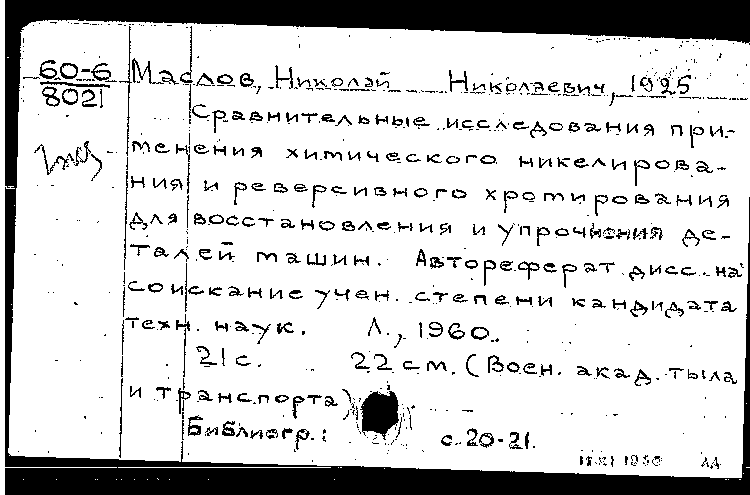 60-6 Маслов, Николай Николаевич, 1925
8021
Сравнительные исследования при-
менения химического никелирова-
ния и реверсивного хромирования
для восстановления и упрочнения де-
талей машин. Автореферат дисс. на
соискание учен. степени кандидата
техн. наук. Л., 1960.
21 с. 22 см. (Воен. акад. тыла
и транспорта)
Библиогр.: с. 20-21.